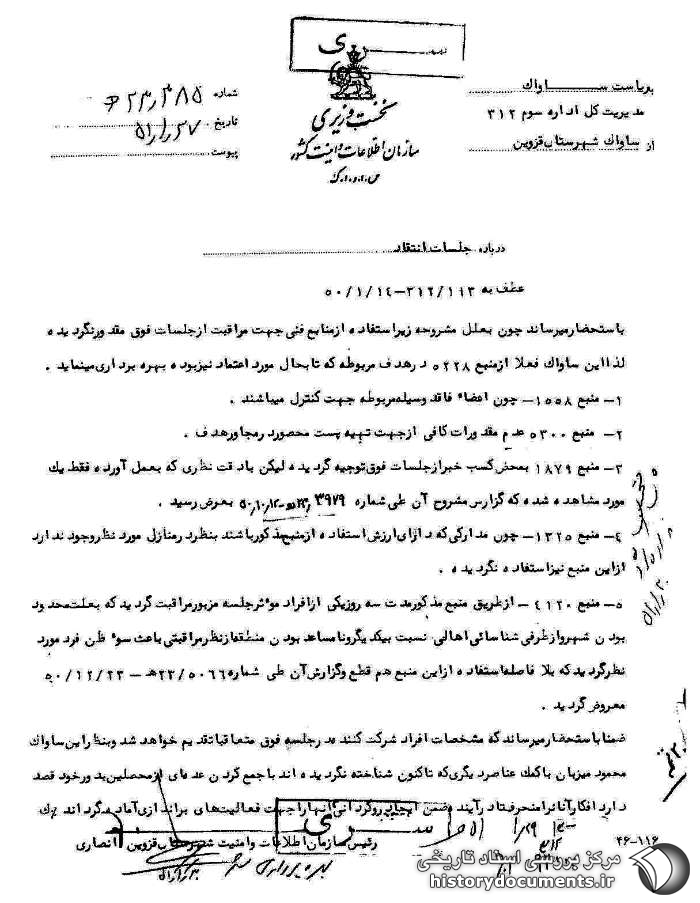 سری
نخست وزیری
سازمان اطلاعات و امنیت کشور
س.ا.و.ا.ک
بریاست ســـــاواک
مدیریت کل اداره سوم ۳۱۲
از ساواک شهرستان قزوین
شماره ۲۳٫۳۸۵ ه
تاریخ ۵۱٫۱٫۲۷
پیوست
درباره جلسات انتقاد
عطف به ۳۱۲/۱۱۳-۵۰/۱/۱۴
باستحضار میرساند چون بعلل مشروحه زیر استفاده از منابع فنی جهت مراقبت از جلسات فوق مقدور نگردیده
لذا این ساواک فعلا از منبع ۵۲۲۸ در هدف مربوطه که تا بحال مورد اعتماد نیز بوده بهره برداری مینماید .
۱- منبع ۱۵۵۸- چون اعضاء فاقد وسیله مربوطه جهت کنترل میباشند .
۲- منبع ۵۳۰۰ عدم مقدورات کافی از جهت تهیه پست محصور در مجاور هدف .
۳- منبع ۱۸۷۹ بمحض کسب خبر از جلسات فوق توجیه گردیده لیکن با دقت نظری که بعمل آورده فقط یک
مورد مشاهده شده که گزارس مشروح آن طی شماره ۳۹۷۹ بعرض رسید .
۴- منبع ۱۳۲۵- چون مدارکی که دارای ارزش استفاده از منبع مذکور باشند بنظر در منازل مورد نظر وجود ندارد
از این منبع نیز استفاده نگردیده .
۵- منبع ۴۱۲۰- از طریق منبع مذکور مدت سه روز یکی از افراد موثر جلسه مزبور مراقبت گردید که بعلت محدود
بودن شهر و از طرفی شناسائی اهالی نسبت بیکدیگر و نامساعد بودن منطقه از نظر مراقبتی باعث سوء ظن فرد مورد
نظر گردید که بلا فاصله استفاده از این منبع هم قطع و گزارش آن طی شماره ۲۳/۵۰۶۶ه - ۵۰/۱۲/۲۳
معروض گردید .
ضمنا باستحضار میرساند که مشخصات افراد شرکت کننده در جلسه فوق متعاقبا تقدیم خواهد شد و بنظر این ساواک
محمود میزبان با کمک عناصر دیگری که تاکنون شناخته نگردیده اند با جمع کردن عده ای از محصلین بدور خود قصد
دارد افکار آنانرا منحرفتاد رآیند و ضمن ایجاد روگردانی آنها را جهت فعالیت های براندازی آماده گرداند
رئیس سازمان اطلاعات و امنیت شهرستان قزوین انصاری
سری
۴۶-۱۱۶
مرکز بررسی اسناد تاریخی
historydocuments.ir